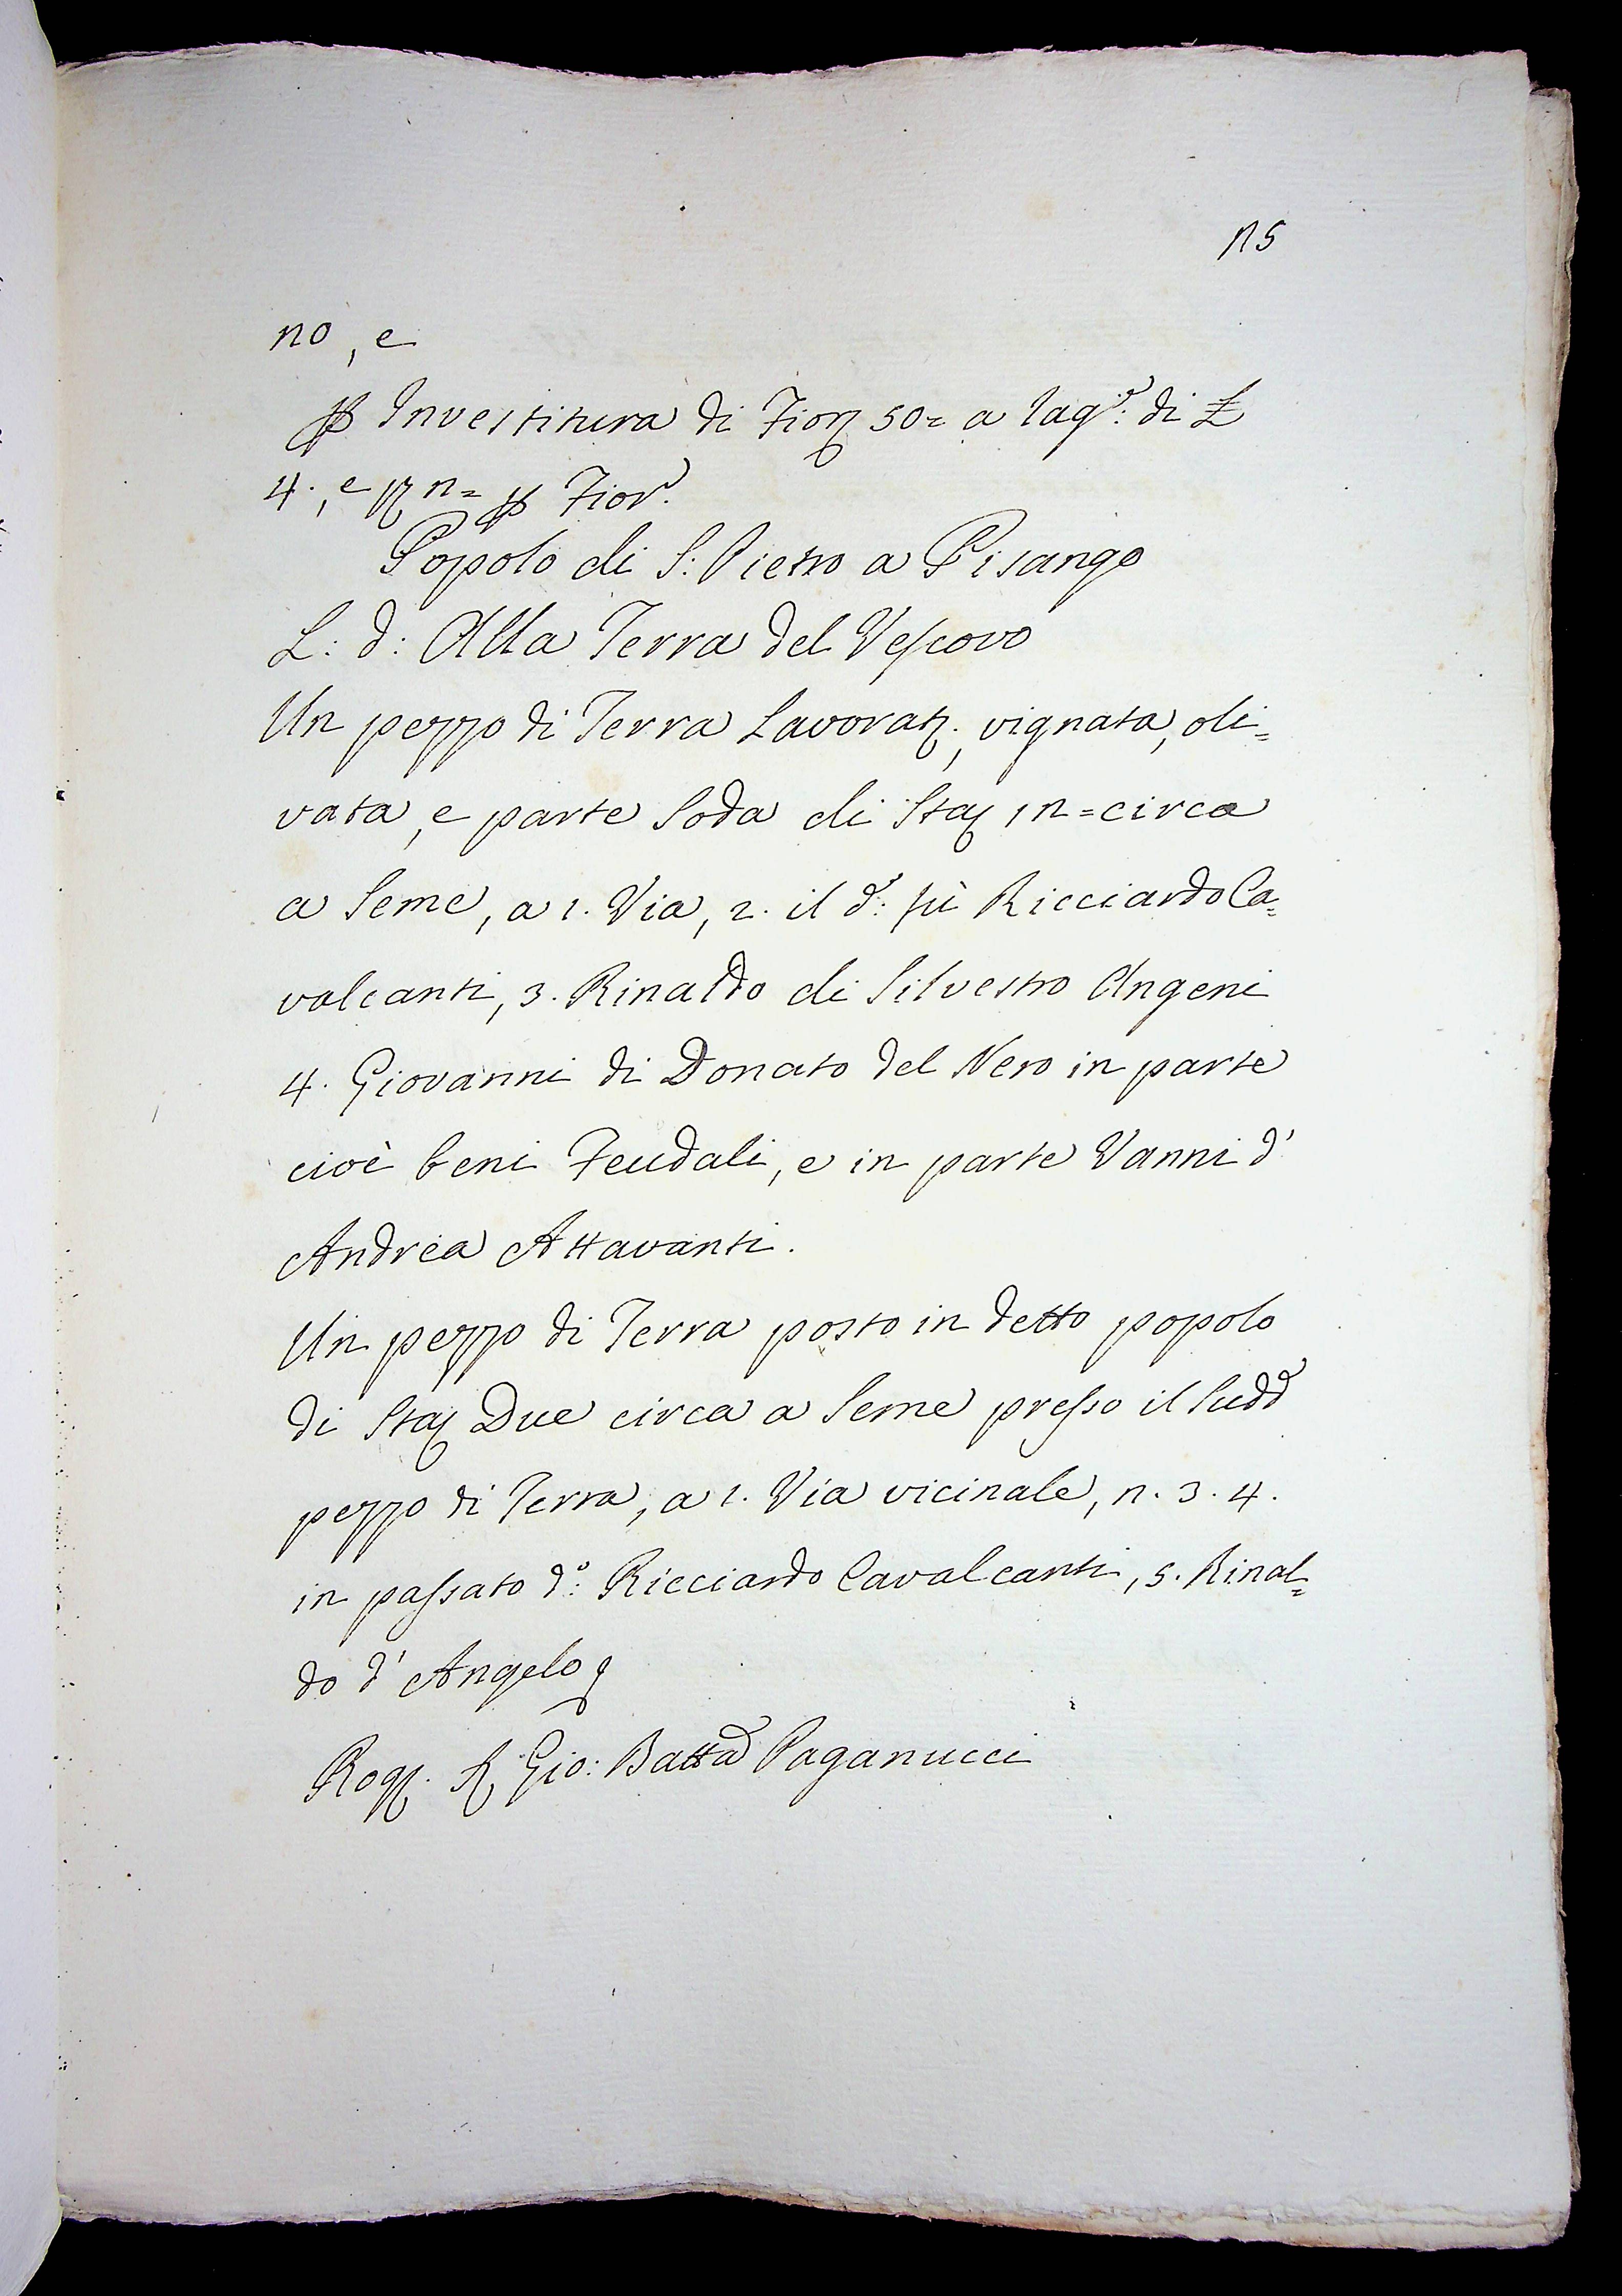 25
no, e
p Investitura di Fior 50= a ragº: di £
4., e 2= p Fior.
Popolo di S: Pietro a Pisango
L: d: Alla Terra del Vescovo
Un pezzo di Terra Lavorat:, vignata, oli=
vata, e parte Soda di Sta 12= circa
a Seme, a 1. Via, 2. il dº: fù Ricciardo Ca=
valcanti, 3. Rinaldo di Silvestro Angeni
4. Giovanni di Donato del Nero in parte
cioè beni Feudali, e in parte Vanni d'
Andrea Attavanti.
Un pezzo di Terra posto in detto popolo
di Sta Due circa a Seme presso il Sudd
pezzo di Terra, a 1. Via vicinale, 2. 3. 4.
in passato dº: Ricciardo Cavalcanti, 5. Rinal=
do d' Angelo
Rog. Gio: Batta Paganucci